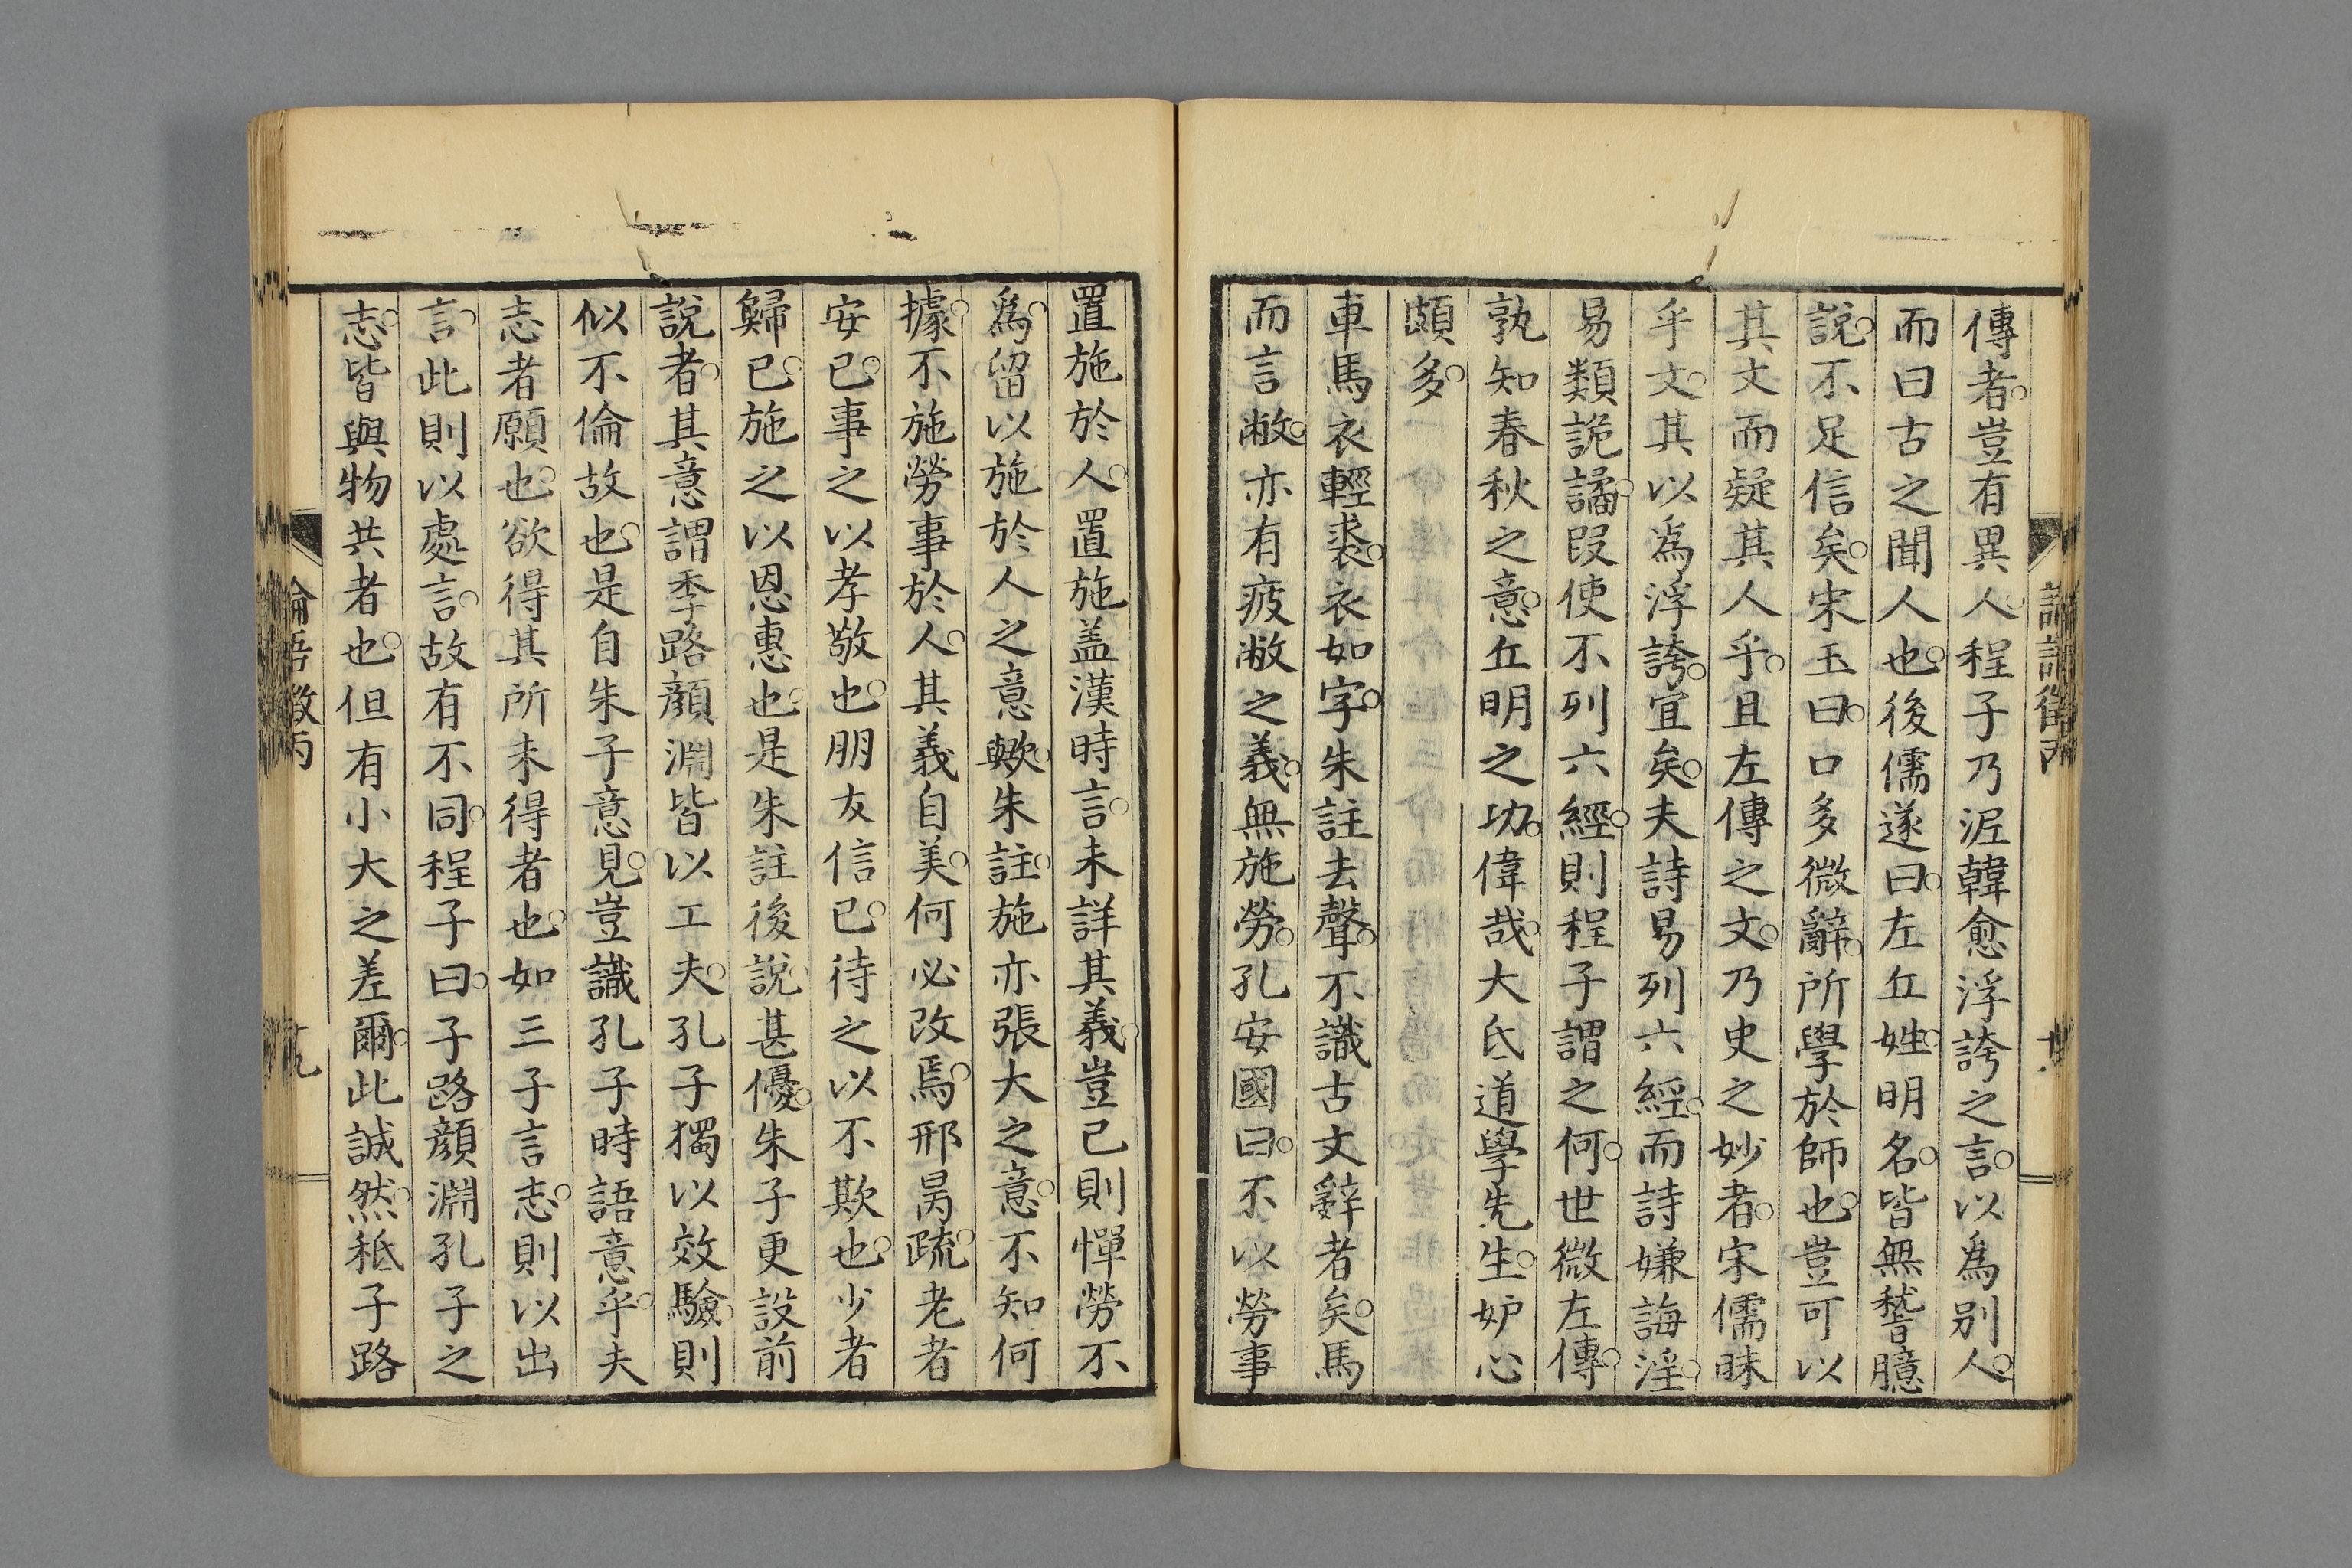 傳者豈有異人程子乃泥韓愈浮誇之言以爲别人
而曰古之聞人也後儒遂曰左丘姓明名皆無稽臆
說不足信矣宋玉曰口多微辭所學於師也豈可以
其文而疑其人乎且左傳之文乃史之妙者宋儒昧
乎文其以爲浮誇宜矣夫詩易列六經而詩嫌誨淫
易類詭譎叚使不列六經則程子謂之何世微左傳
孰知春秋之意丘明之功偉哉大氐道學先生妒心
頗多
車馬衣輕裘衣如字朱註去聲不識古文辭者矣馬
而言敝亦有疲敝之義無施勞孔安國曰不以勞事
置施於人置施盖漢時言未詳其義豈已則憚勞不
爲留以施於人之意歟朱註施亦張大之意不知何
據不施勞事於人其義自美何必改焉邢昺疏老者
安已事之以孝敬也朋友信已待之以不欺也少者
歸已施之以恩惠也是朱註後說甚優朱子更設前
說者其意謂季路顔淵皆以工夫孔子獨以效驗則
似不倫故也是自朱子意見豈識孔子時語意乎夫
志者願也欲得其所未得者也如三子言志則以出
言此則以處言故有不同程子曰子路顔淵孔子之
志皆與物共者也但有小大之差爾此誠然秪子路
論語徵丙